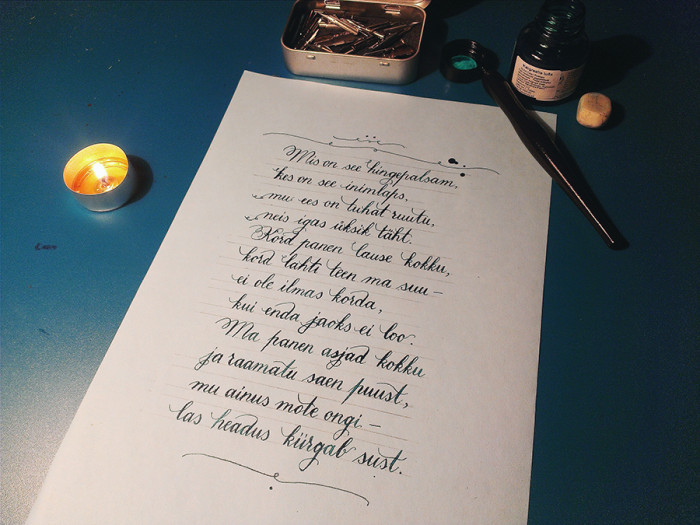 Mis on see hingepalsam,
kes on see inimlaps,
mu ees on tuhat ruutu,
neis igas üksik täht.
Kord panen lause kokku,
kord lahti teen ma suu –
ei ole ilmas korda,
kui enda jaoks ei loo.
Ma panen asjad kokku
ja raamatu saen puust,
mu ainus mõte ongi –
las headus kiirgab sust.